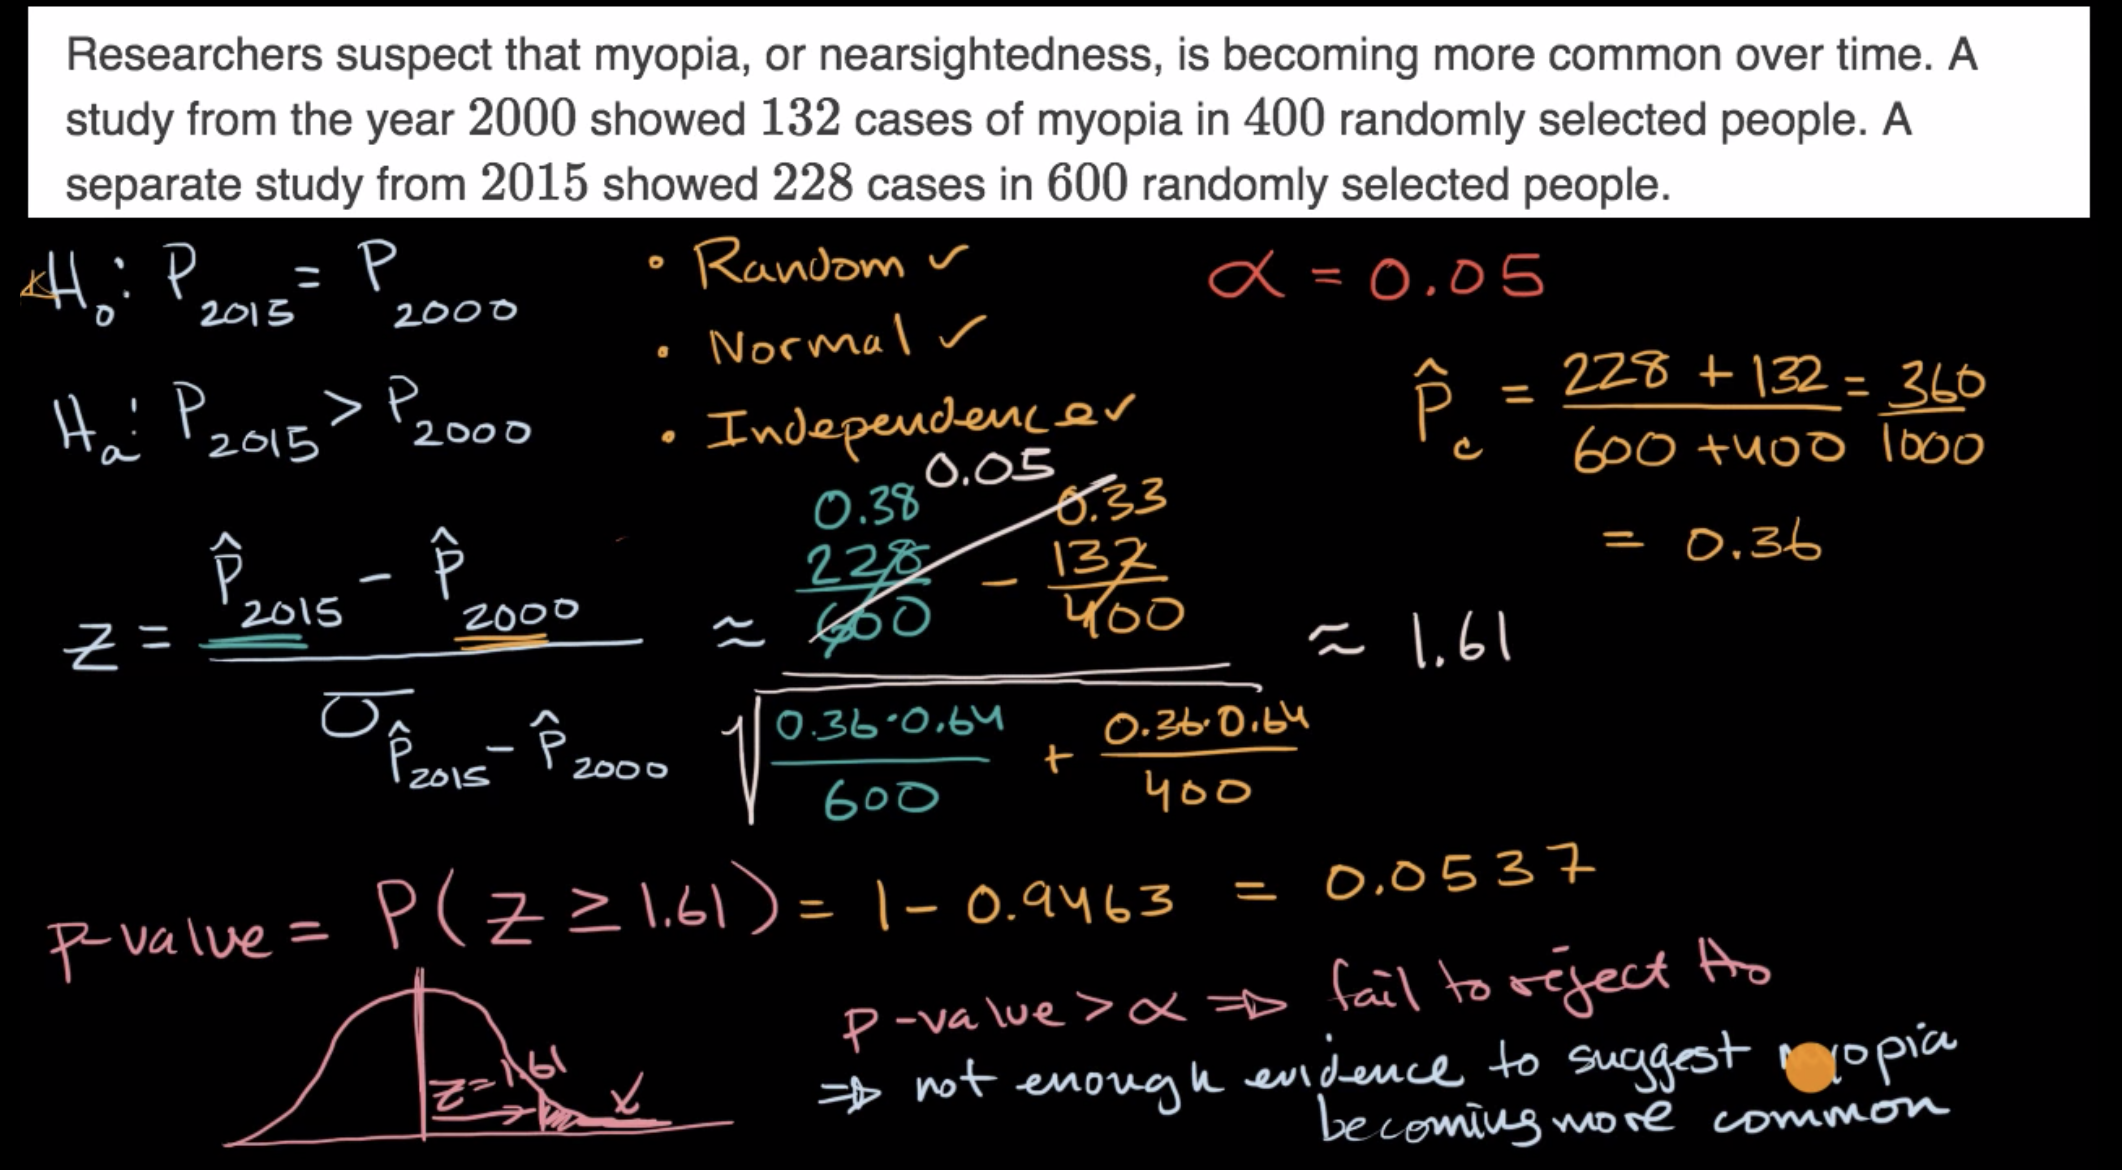 Researchers suspect that myopia, or nearsightedness, is becoming more common over time. A
study from the year 2000 showed 132 cases of myopia in 400 randomly selected people. A
separate study from 2015 showed 228 cases in 600 randomly selected people.
H₀: P₂₀₁₅ = P₂₀₀₀
Hₐ: P₂₀₁₅ > P₂₀₀₀
• Random ✓
• Normal ✓
• Independence ✓
α = 0.05
P̂c = (228 + 132)/(600 + 400) = 360/1000
= 0.36
0.05
0.38 0.33
Z = (P̂₂₀₁₅ − P̂₂₀₀₀)/σ_(P̂₂₀₁₅ − P̂₂₀₀₀) ≈ (228/600 − 132/400)/√(0.36·0.64/600 + 0.36·0.64/400) ≈ 1.61
P-value = P(Z ≥ 1.61) = 1 − 0.9463 = 0.0537
Z=1.61
P-value > α ⇒ fail to reject H₀
⇒ not enough evidence to suggest myopia
becoming more common